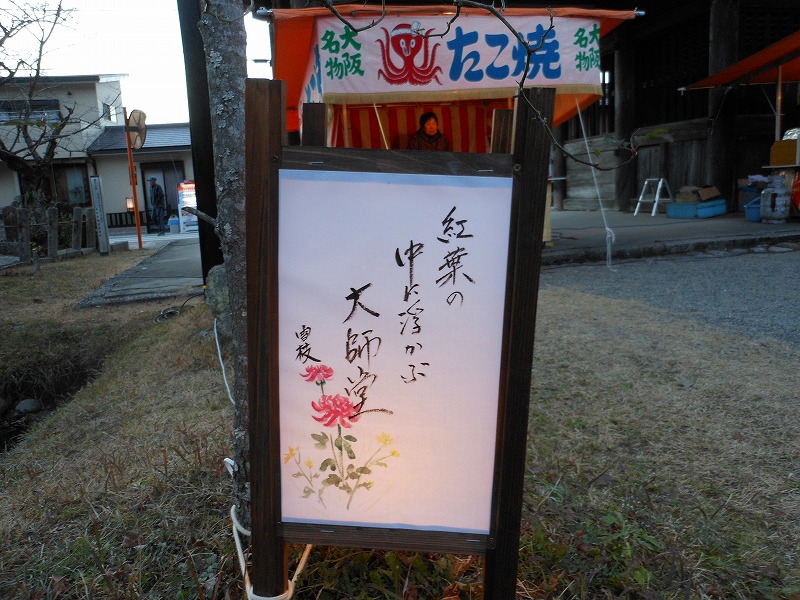 大阪
名物
たこ焼
大阪
名物
紅葉の
中に浮かぶ
大師堂